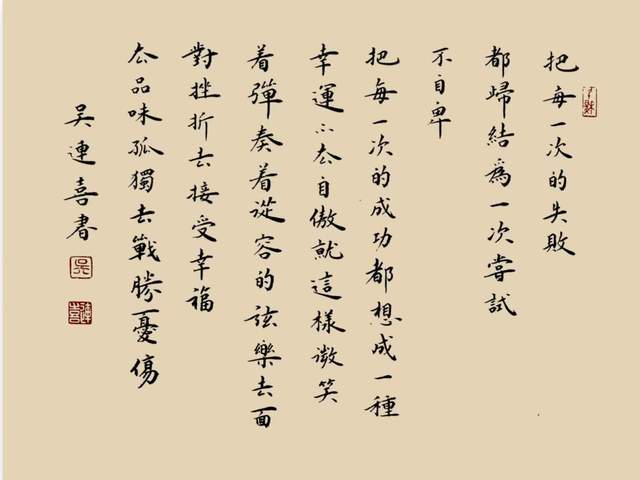 把每一次的失敗
都歸結爲一次嘗試
不自卑
把每一次的成功都想成一種
幸運不厺自傲就這樣微笑
着彈奏着從容的弦樂去面
對挫折去接受幸福
厺品味孤獨去戰勝憂傷
吳連喜書
吳